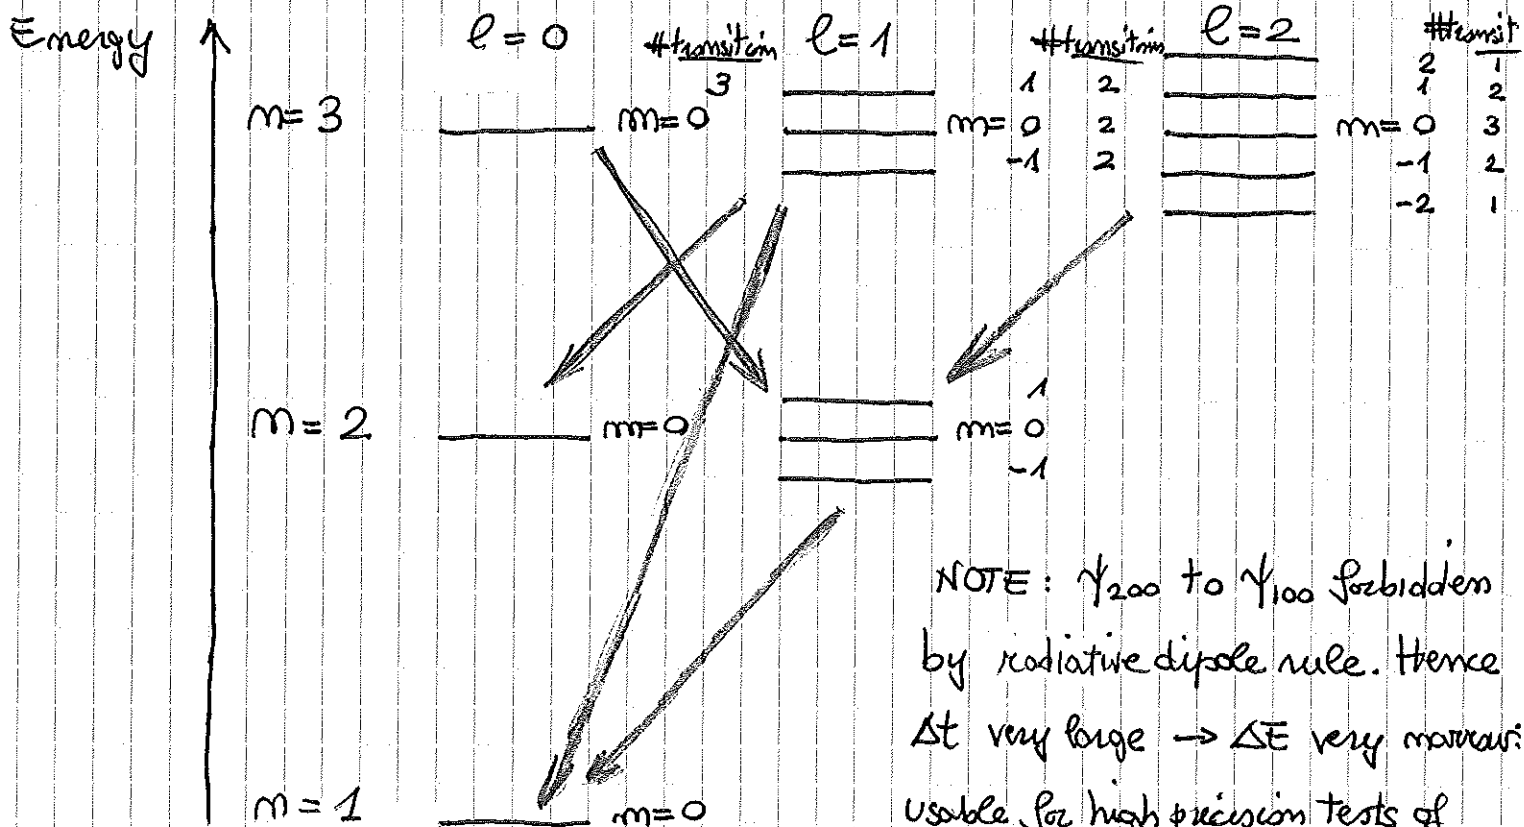 Energy l=0 #transition l=1 #transition l=2 #transit
3 1 2 2 1
1 2
n=3 m=0 m=0 2 m=0 3
-1 2 -1 2
-2 1
1
n=2 m=0 m=0
-1
NOTE: ψ200 to ψ100 forbidden
by radiative dipole rule. Hence
Δt very large → ΔE very narrow:
n=1 m=0 usable for high precision tests of